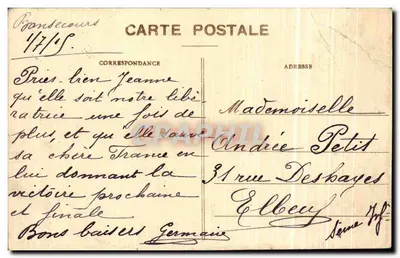 Bonsecours
1/7/15
CARTE POSTALE
CORRESPONDANCE
Pries-bien Jeanne
qu'elle soit notre libé-
ratrice une fois de
plus, et qu'elle sauve
sa chère France en
lui donnant la
victoire prochaine
et finale
Bons baisers Germaine
ADRESSE
Mademoiselle
Andrée Petit
31 rue Deshayes
Elbeuf
Seine Inf